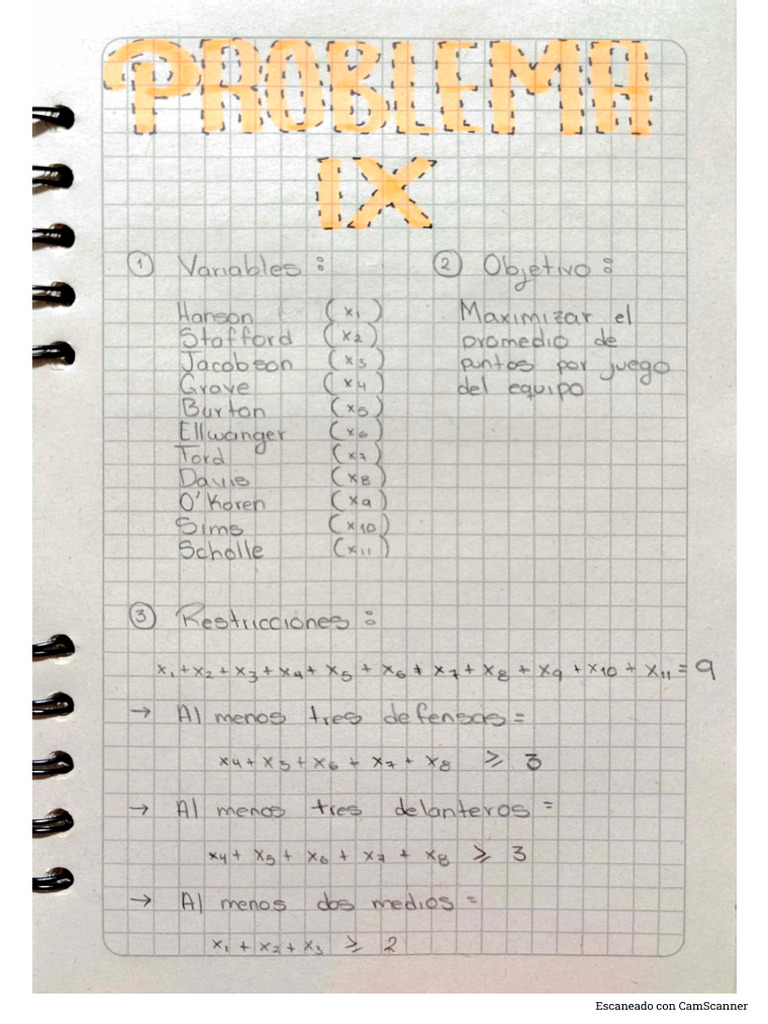 PROBLEMA
IX
① Variables :
Hanson (x1)
Stafford (x2)
Jacobson (x3)
Grave (x4)
Burton (x5)
Ellwanger (x6)
Tord (x7)
Davis (x8)
O'Koren (x9)
Sims (x10)
Scholle (x11)
② Objetivo :
Maximizar el
promedio de
puntos por juego
del equipo
③ Restricciones :
x1 + x2 + x3 + x4 + x5 + x6 + x7 + x8 + x9 + x10 + x11 = 9
→ Al menos tres defensas =
x4 + x5 + x6 + x7 + x8 ≥ 3
→ Al menos tres delanteros =
x4 + x5 + x6 + x7 + x8 ≥ 3
→ Al menos dos medios =
x1 + x2 + x3 ≥ 2
Escaneado con CamScanner